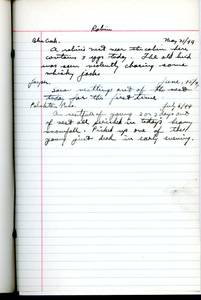 Robin
May 21/44
A robin's nest near the cabin here
contains 3 eggs today. The old bird
was seen violently chasing some
whisky jacks.
Jasper. June
saw nestlings out of the nest
today for the first time
July 6/44
A nestful of young 2 or 3 days out
of nest all perished in today's heavy
snowfall. Picked up one of the
young just dead in early evening.